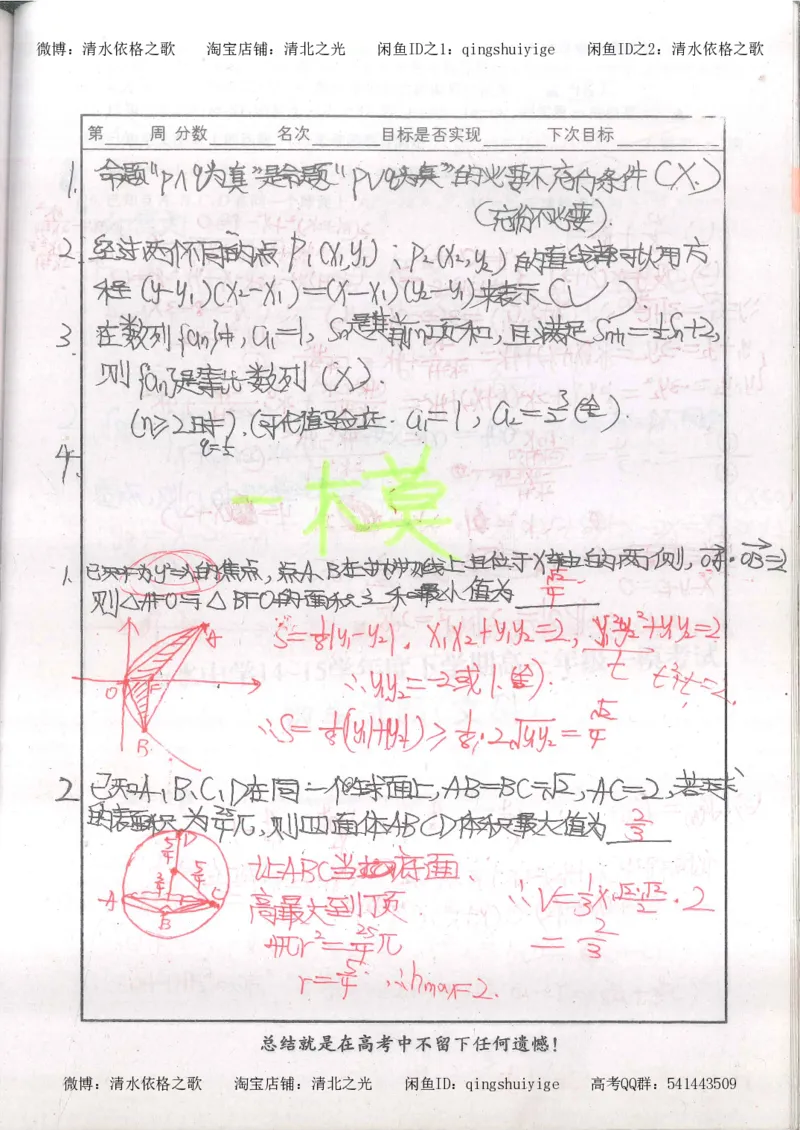 微博：清水依格之歌 淘宝店铺：清北之光 闲鱼ID之1：qingshuiyige 闲鱼ID之2：清水依格之歌
第 周 分数 名次 目标是否实现 下次目标
1. 命题"P∧q为真"是命题"P∨q为真"的必要不充分条件 (X)
(充份不必要).
2. 经过两个不同的点 P₁(x₁,y₁)；P₂(x₂,y₂) 的直线都可以用方
程 (y-y₁)(x₂-x₁)=(x-x₁)(y₂-y₁)来表示 (√).
3. 在数列{an}中, a₁=1, Sn是其前n项和, 且满足 Sn+1=½Sn+2,
则{an}是等比数列 (X).
(n≥2时). (可代值验证: a₁=1, a₂=3/2(舍).
q=½
4.
一木莫
1. 已知F为y²=x的焦点, 点A、B在抛物线上且位于x轴的两侧, OA·OB=2
则△AFO与△BFO的面积之和最小值为 √2/4
S=1/8|y₁-y₂|. x₁x₂+y₁y₂=2, y₁²y₂²+y₁y₂=2
t t²+t=2.
∴y₁y₂=-2或1(舍).
∴S=1/8(|y₁|+|y₂|)≥1/8·2√y₁y₂=√2/4
A
O F
B
2 已知A、B、C、D在同一个球面上, AB=BC=√2, AC=2, 若球
的表面积为25/4π, 则四面体ABCD体积最大值为 2/3
让ABC当底面.
高最大到顶
4πr²=25/4π
r=5/4 ∴hmax=2.
∴V=1/3×√2·√2/2·2
=2/3
D
5/4
3/4 5/4
A C
B
总结就是在高考中不留下任何遗憾！
微博：清水依格之歌 淘宝店铺：清北之光 闲鱼ID：qingshuiyige 高考QQ群：541443509